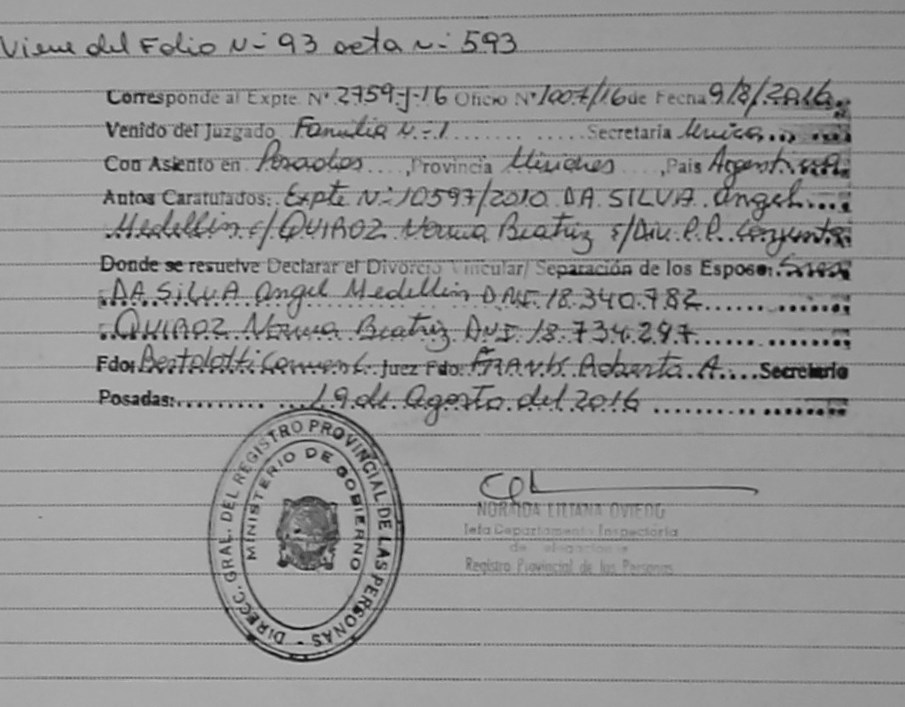 Viene del Folio N- 93 acta N- 593
Corresponde al Expte. N° 2759-J-16 Oficio N° 1007/16 de Fecha 9/8/2016
Venido del Juzgado Familia N-1 Secretaria Unica
Con Asiento en Posadas, Provincia Misiones, Pais Argentina
Autos Caratulados: Expte N- 10597/2010 DA SILVA Angel
Medellin c/ QUIROZ Norma Beatriz s/Div. P.P. Conjunta
Donde se resuelve Declarar el Divorcio Vincular/ Separación de los Esposos:
DA SILVA Angel Medellin DNI. 18.340.782
QUIROZ Norma Beatriz DNI. 18.734.297
Fdo: Bertolotti Juez Fdo: Roberta A. Secretario
Posadas: 19 de Agosto del 2016
DIRECC. GRAL. DEL REGISTRO PROVINCIAL DE LAS PERSONAS -
MINISTERIO DE GOBIERNO
NORAIDA LILIANA OVIEDO
Jefa Departamento Inspectoria
de
Registro Provincial de las Personas